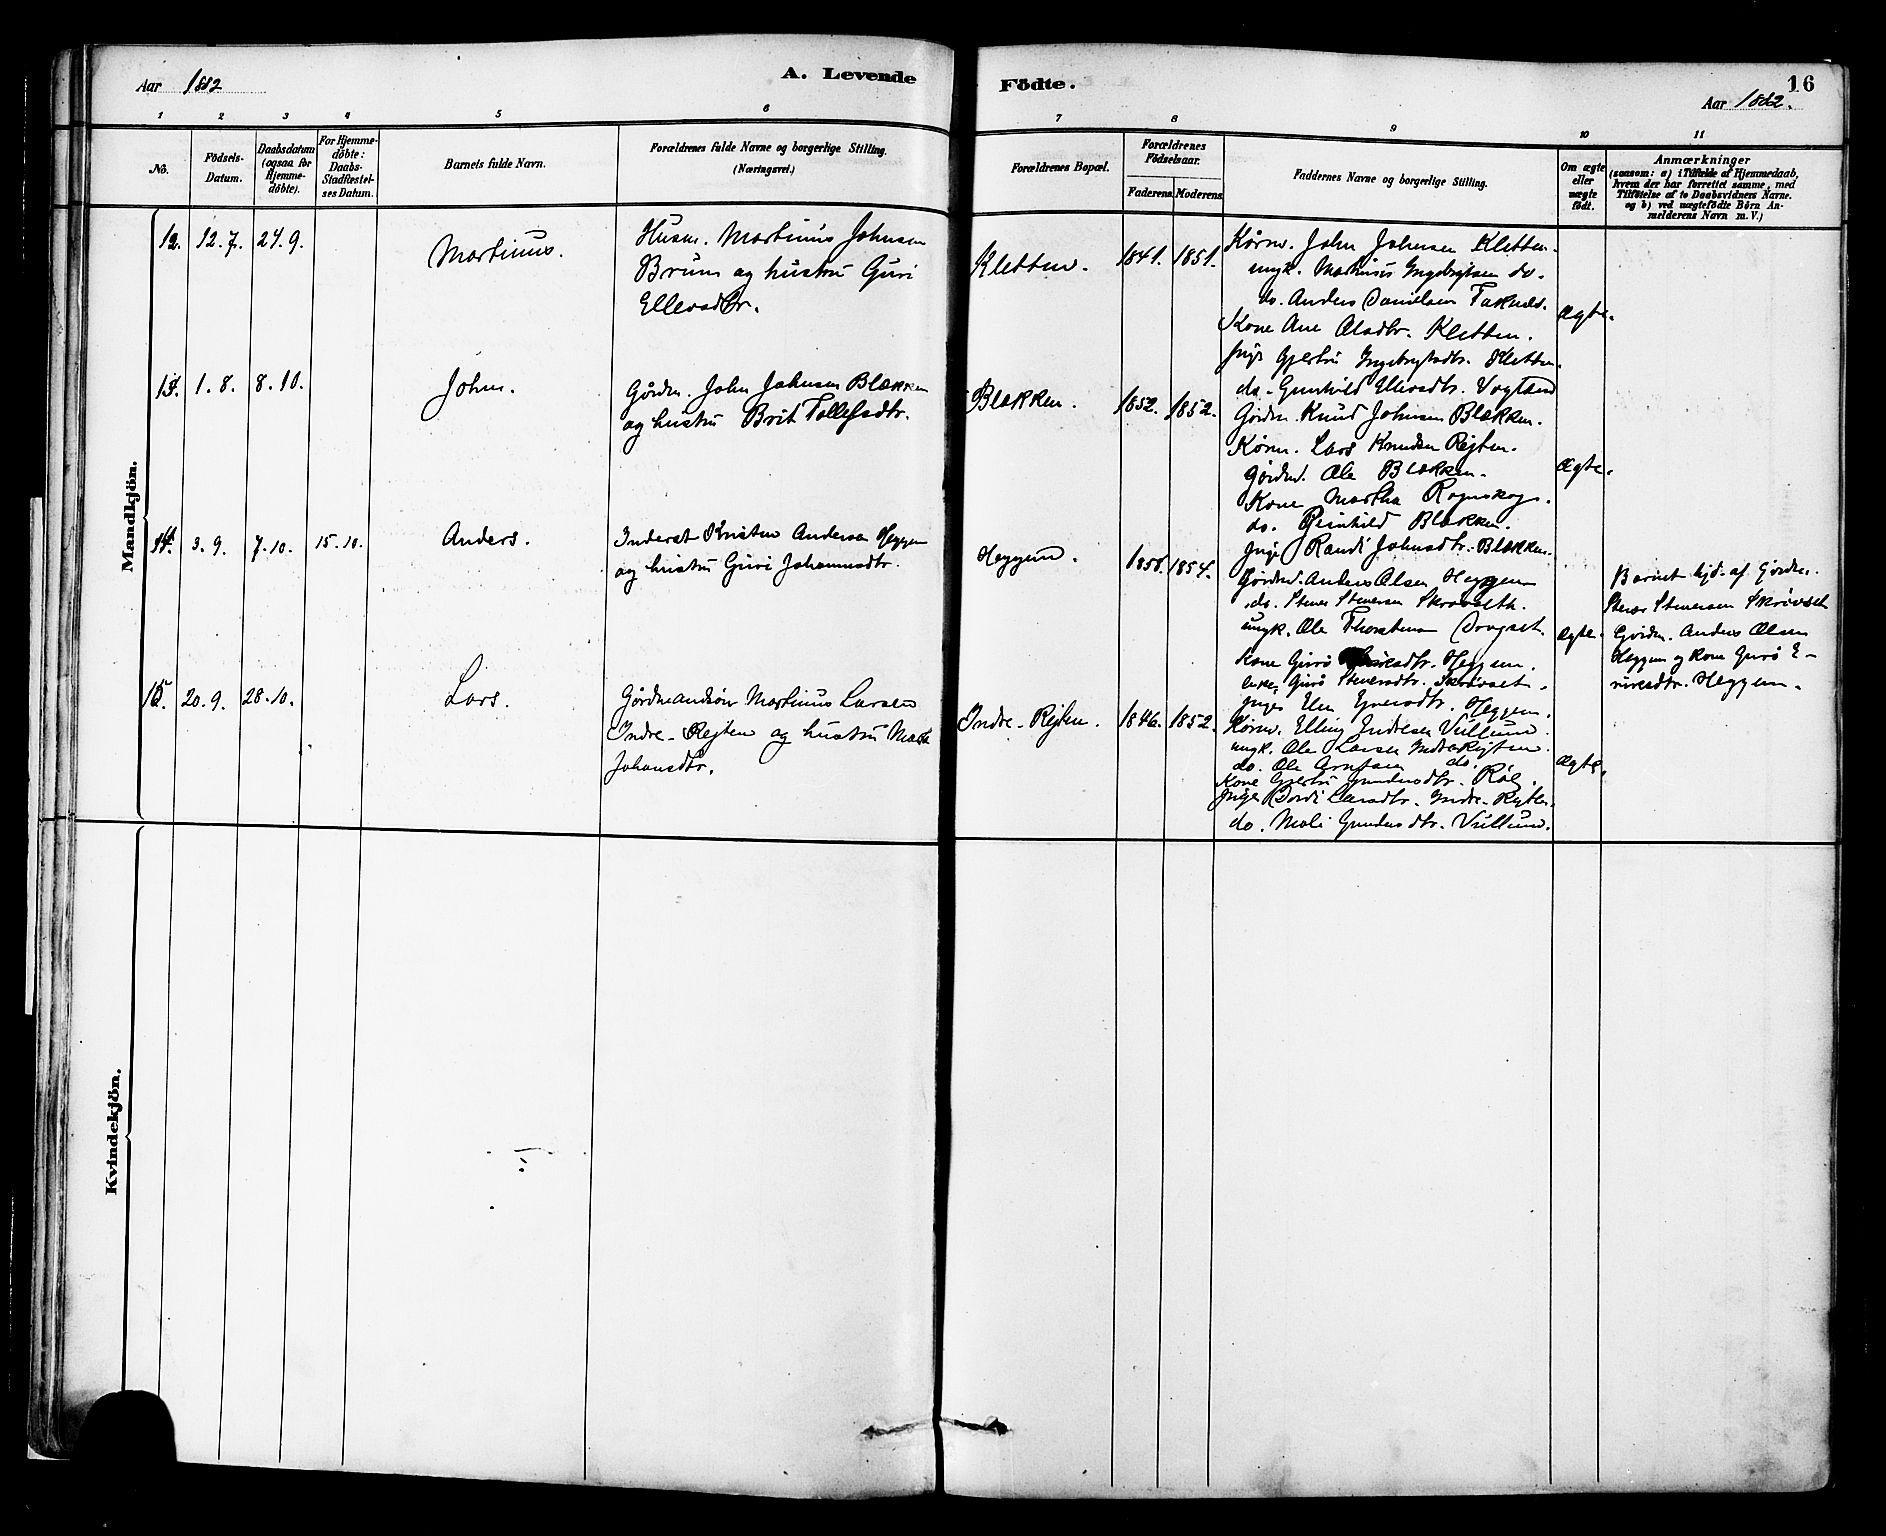 Aar 1882
A. Levende
Födte.
16
Aar 1882.
1 2 3 4 5 6 7 8 9 10 11
No.
Födsels-
Datum.
Daabsdatum
(ogsaa for
Hjemme-
döbte).
For Hjemme-
döbte:
Daabs-
Stadfæstel-
ses Datum.
Barnets fulde Navn.
Forældrenes fulde Navne og borgerlige Stilling.
(Næringsvei.)
Forældrenes Bopæl.
Forældrenes
Födselsaar.
Faderens. Moderens.
Faddernes Navne og borgerlige Stilling.
Om ægte
eller
uægte
födt.
Anmærkninger
(saasom: a) i Tilfælde af Hjemmedaab,
hvem der har forrettet samme, med
Tilföielse af to Daabsvidners Navne.
og b) ved uægtefödte Börn An-
melderens Navn m. V.)
Mandkjön.
12. 12.7. 24.9.
Martinus.
Husm. Martinus Johnsen
Brun og hustru Guri
Ellevsdtr.
Kletten.
1841. 1851.
Kårm. John Johnsen Kletten.
ungk. Martinus Ingebrigtsen do.
do. Anders Danielsen Taknes.
Kone Ane Olsdtr. Kletten.
Pige Gjertru Ingebrigtsdtr. Kletten.
do. Gunhild Ellevsdtr. Vogland
Ægte.
13. 1.8. 8.10.
John.
Gårdm. John Johnsen Blækken
og hustru Brit Tollefsdtr.
Blækken.
1852. 1852.
Gårdm. Knud Johnsen Blækken.
Kårm. Lars Knudsen Rejten.
Gårdm. Ole Blækken.
Kone Martha Rognskog.
do. Blækken.
Pige Randi Johnsdtr. Blækken.
Ægte.
14. 3.9. 7.10. 15.10.
Anders.
Inderst Kristen Andersen Heggem
og hustru Guri Johannesdtr.
Heggem.
1854.
Gårdm. Anders Olsen Heggem
do. Stener Stenersen Skrövseth.
ungk. Ole Thorstensen
Kone Guro Heggem.
Enke Guro Stenersdtr. Skrövset.
Pige Heggem.
Ægte.
Barnet hjd. af Gårdm.
Stener Stenersen Skrövset
Gårdm. Anders Olsen
Heggem og Kone Guro E-
riksdtr. Heggem.
15. 20.9. 28.10.
Lars.
Gårdmandsön Martinus Larsen
Indre-Rejten og hustru
Johansdtr.
Indre-Rejten.
1846. 1852.
Kårm. Elling Indresen Vullum.
ungk. Ole Larsen Indre Rejten.
do. Ole Arntsen do.
Kone Gjertru Gundersdtr.
Pige Larsdtr. Indre-Rejten.
do. Mali Gundersdtr. Vullum.
Ægte.
Kvindekjön.